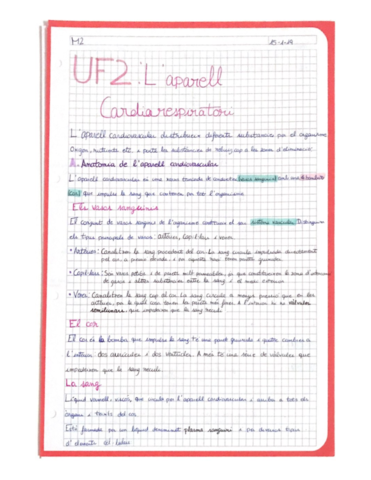 M2
UF2: L'aparell
Cardiorespiratori
L'aparell cardiovascular distribueix diferents substancies per el organisme
Oxigen, nutrients etc. i porta les substancies de rebuig cap a les zones d'eliminació.
A. Anatomia de l'aparell cardiovascular
L'aparell cardiovascular es una xarxa tancada de conductes (vasos sanguinis) amb una bomba
(cor) que impulsa la sang que contenen per tot l'organisme.
Els vasos sanguinis
El conjunt de vasos sanguinis de l'organisme constitueix el seu sistema vascular. Distingim
els tipus principals de vasos: artèries, capil·lars i venes.
• Artèries: Condueixen la sang procedent del cor. La sang circula impulsada directament
pel cor a pressió elevada, i per aquesta raó tenen parets gruixudes.
• Capil·lars: Són vasos petits i de parets molt permeables, ja que constitueixen la zona d'intercanvi
de gasos i altres substancies entre la sang i el medi extern.
• Venes: Condueixen la sang cap al cor. La sang circula a menys pressió que en les
artèries, per la qual cosa tenen les parets més fines. A l'interior hi ha vàlvules
semilunars, que impedeixen que la sang reculi.
El cor
El cor és la bomba que impulsa la sang. Té una paret gruixuda i quatre cambres a
l'interior: dos aurícules i dos ventricles. A més té una serie de vàlvules que
impedeixen que la sang reculi.
La sang
Líquid vermell, viscós, que circula per l'aparell cardiovascular i arriba a tots els
òrgans i teixits del cos.
Està formada per un líquid denominat plasma sanguini i per diversos tipus
d'elements cel·lulars